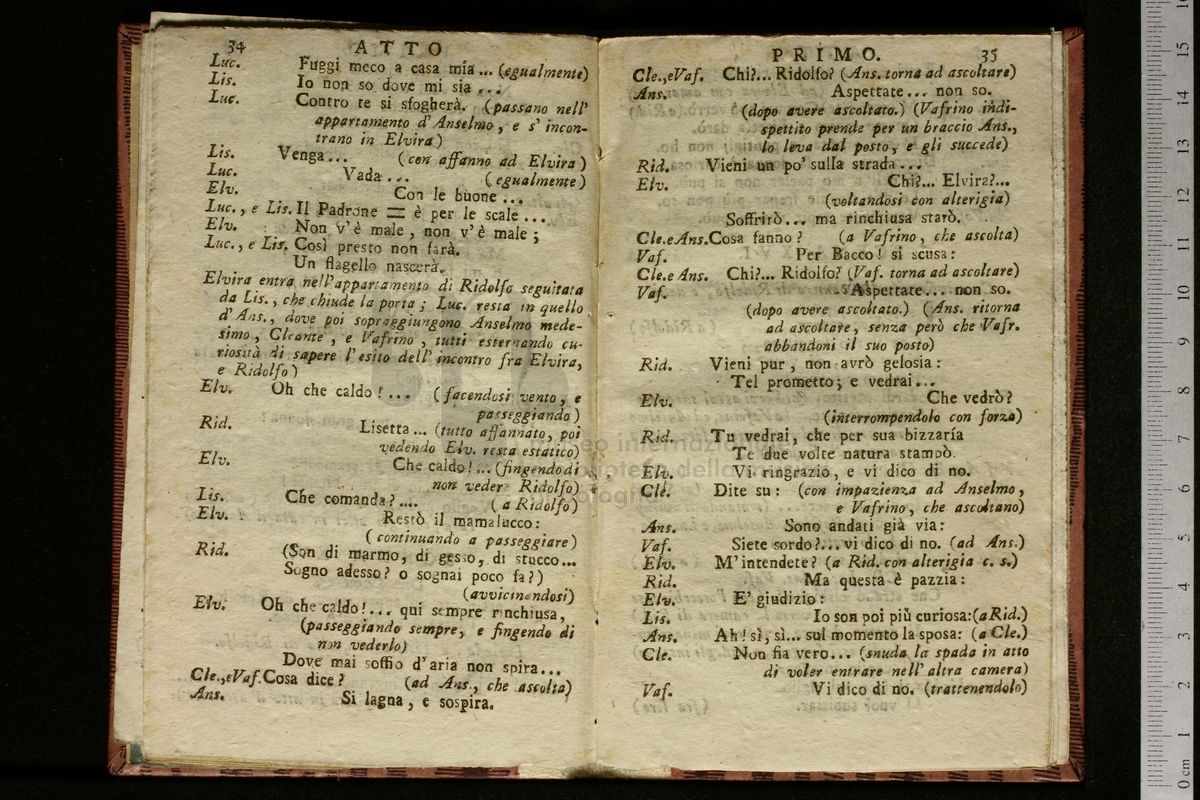 34
ATTO
Luc. Fuggi meco a casa mia... (egualmente)
Lis. Io non so dove mi sia...
Luc. Contro te si sfogherà. (passano nell'
appartamento d'Anselmo, e s'incon-
trano in Elvira)
Lis. Venga... (con affanno ad Elvira)
Luc. Vada... (egualmente)
Elv. Con le buone...
Luc., e Lis. Il Padrone = è per le scale...
Elv. Non v'è male, non v'è male;
Luc., e Lis. Così presto non farà.
Un flagello nascerà.
Elvira entra nell'appartamento di Ridolfo seguitata
da Lis., che chiude la porta; Luc. resta in quello
d'Ans., dove poi sopraggiungono Anselmo mede-
simo, Cleante, e Vafrino, tutti esternando cu-
riosità di sapere l'esito dell'incontro fra Elvira,
e Ridolfo)
Elv. Oh che caldo!... (facendosi vento, e
passeggiando)
Rid. Lisetta... (tutto affannato, poi
vedendo Elv. resta estatico)
Elv. Che caldo!... (fingendo di
non veder Ridolfo)
Lis. Che comanda?.... (a Ridolfo)
Elv. Restò il mamalucco:
(continuando a passeggiare)
Rid. (Son di marmo, di gesso, di stucco...
Sogno adesso? o sognai poco fa?)
(avvicinandosi)
Elv. Oh che caldo!... qui sempre rinchiusa,
(passeggiando sempre, e fingendo di
non vederlo)
Dove mai soffio d'aria non spira...
Cle., e Vaf. Cosa dice? (ad Ans., che ascolta)
Ans. Si lagna, e sospira.
PRIMO.
35
Cle., e Vaf. Chi?... Ridolfo? (Ans. torna ad ascoltare)
Ans. Aspettate... non so.
(dopo avere ascoltato.) (Vafrino indi-
spettito prende per un braccio Ans.,
lo leva dal posto, e gli succede)
Rid. Vieni un po' sulla strada...
Elv. Chi?... Elvira?...
(voltandosi con alterigia)
Soffrirò... ma rinchiusa starò.
Cle. e Ans. Cosa fanno? (a Vafrino, che ascolta)
Vaf. Per Bacco! si scusa:
Cle. e Ans. Chi?... Ridolfo? (Vaf. torna ad ascoltare)
Vaf. Aspettate... non so.
(dopo avere ascoltato.) (Ans. ritorna
ad ascoltare, senza però che Vafr.
abbandoni il suo posto)
Rid. Vieni pur, non avrò gelosia:
Tel prometto; e vedrai...
Elv. Che vedrò?
(interrompendolo con forza)
Rid. Tu vedrai, che per sua bizzaría
Te due volte natura stampò.
Elv. Vi ringrazio, e vi dico di no.
Cle. Dite su: (con impazienza ad Anselmo,
e Vafrino, che ascoltano)
Ans. Sono andati già via:
Vaf. Siete sordo?... vi dico di no. (ad Ans.)
Elv. M'intendete? (a Rid. con alterigia c. s.)
Rid. Ma questa è pazzia:
Elv. E' giudizio:
Lis. Io son poi più curiosa: (a Rid.)
Ans. Ah! sì, sì... sul momento la sposa: (a Cle.)
Cle. Non fia vero... (snuda la spada in atto
di voler entrare nell'altra camera)
Vaf. Vi dico di no. (trattenendolo)